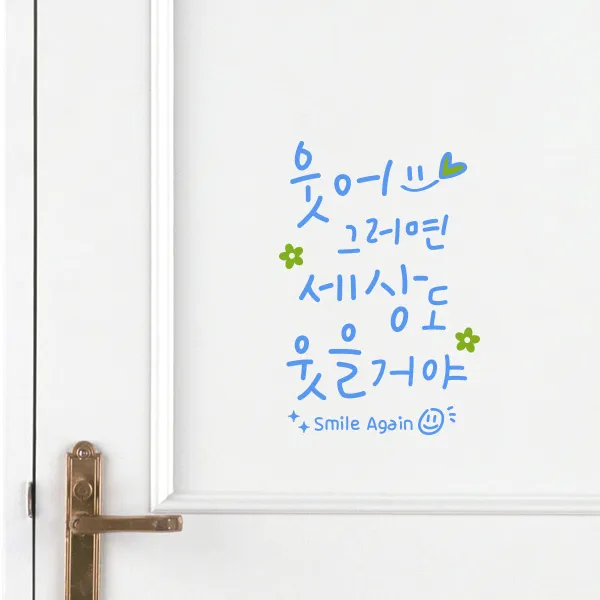 웃어
그러면
세상도
웃을거야
Smile Again